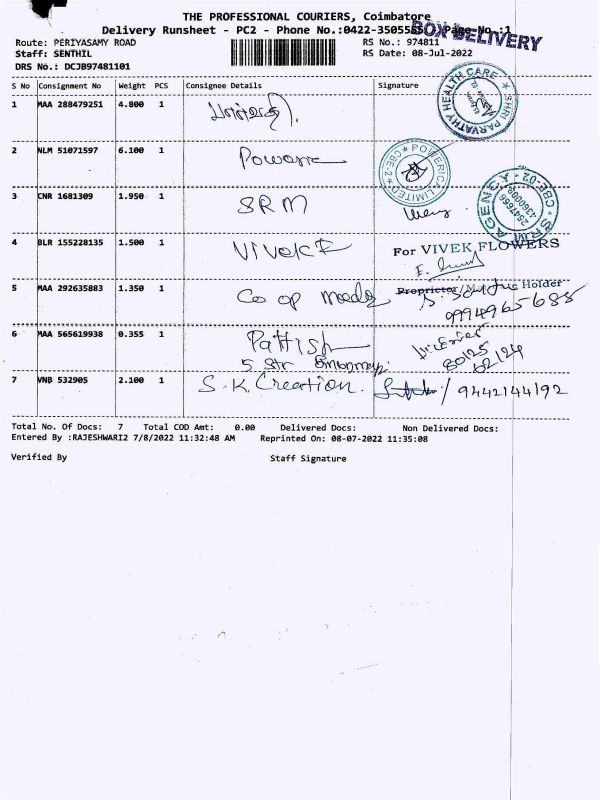 THE PROFESSIONAL COURIERS, Coimbatore
Delivery Runsheet - PC2 - Phone No.:0422-350555 Page No.:1
BOX DELIVERY
Route: PERIYASAMY ROAD RS No.: 974811
Staff: SENTHIL RS Date: 08-Jul-2022
DRS No.: DCJB97481101
S No Consignment No Weight PCS Consignee Details Signature
1 MAA 288479251 4.800 1
SHRI PARVATHY HEALTH CARE
2 NLM 51071597 6.100 1
POWERICA LIMITED CBE-2
3 CNR 1681309 1.950 1 SRM
SRM AGENCY CBE-02
4 BLR 155228135 1.500 1 For VIVEK FLOWERS
Proprietor Holder
5 MAA 292635883 1.350 1 Co op 9994965688
6 MAA 565619938 0.355 1
5 Str 80125
62124
7 VNB 532905 2.100 1 S.K. Creation. / 9442144192
Total No. Of Docs: 7 Total COD Amt: 0.00 Delivered Docs: Non Delivered Docs:
Entered By :RAJESHWARI2 7/8/2022 11:32:48 AM Reprinted On: 08-07-2022 11:35:08
Verified By Staff Signature